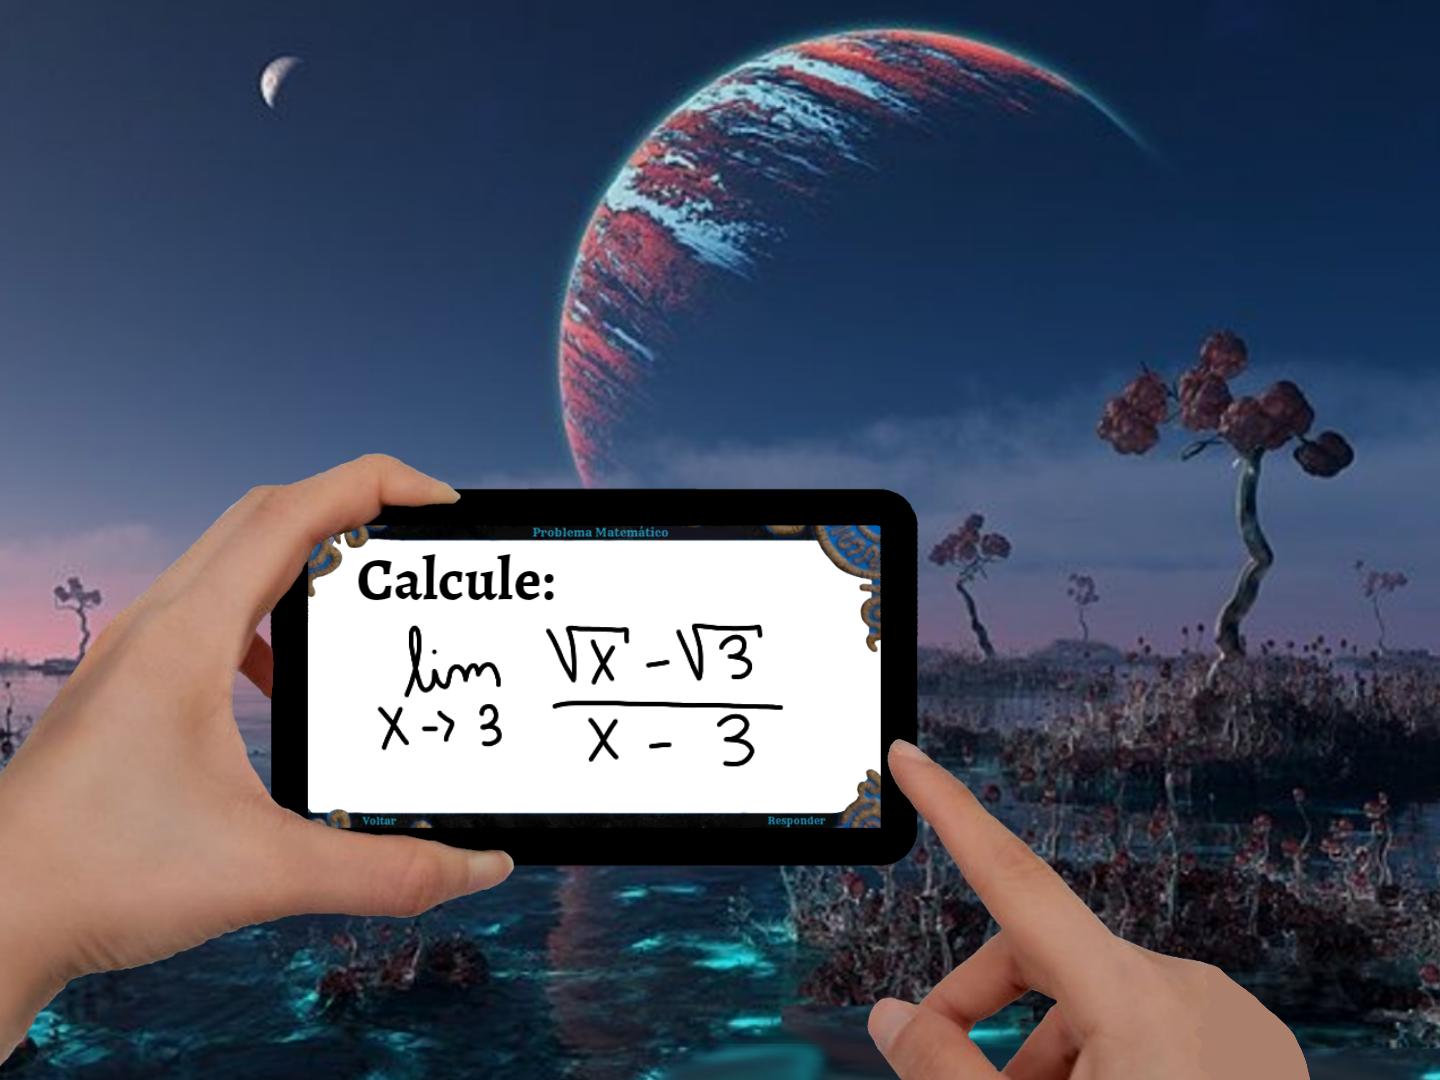 Problema Matemático
Calcule:
lim √x - √3
x → 3 x - 3
Voltar Responder